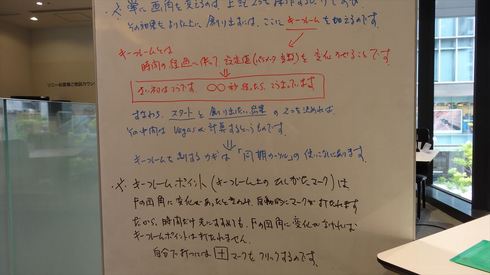 ※ 単に画角を変えるのは、上記2つを操作するだけですが
その効果をより以上に創り出すには、ここに キーフレーム を加えるのです。
キーフレームとは
時間の経過に伴って設定値(パラメータ変数)を変化させることです。
はじめはこうです。〇〇秒経ったら、こうなっています
すなわち、スタート と 創り出したい結果 の2つを決めれば
その中間は Vegas が計算するというものです。
キーフレームを制するカギは「同期カーソル」の使いこなしにあります。
※ キーフレームポイント(キーフレーム上のひしがたマーク)は
Fの図角に変化があったときのみ、自動的にマークが打たれます
だから、時間だけ先にすすめても、Fの図角に変化がなければ
キーフレームポイントは打たれません。
自分で打つには + マークをクリックするのです。